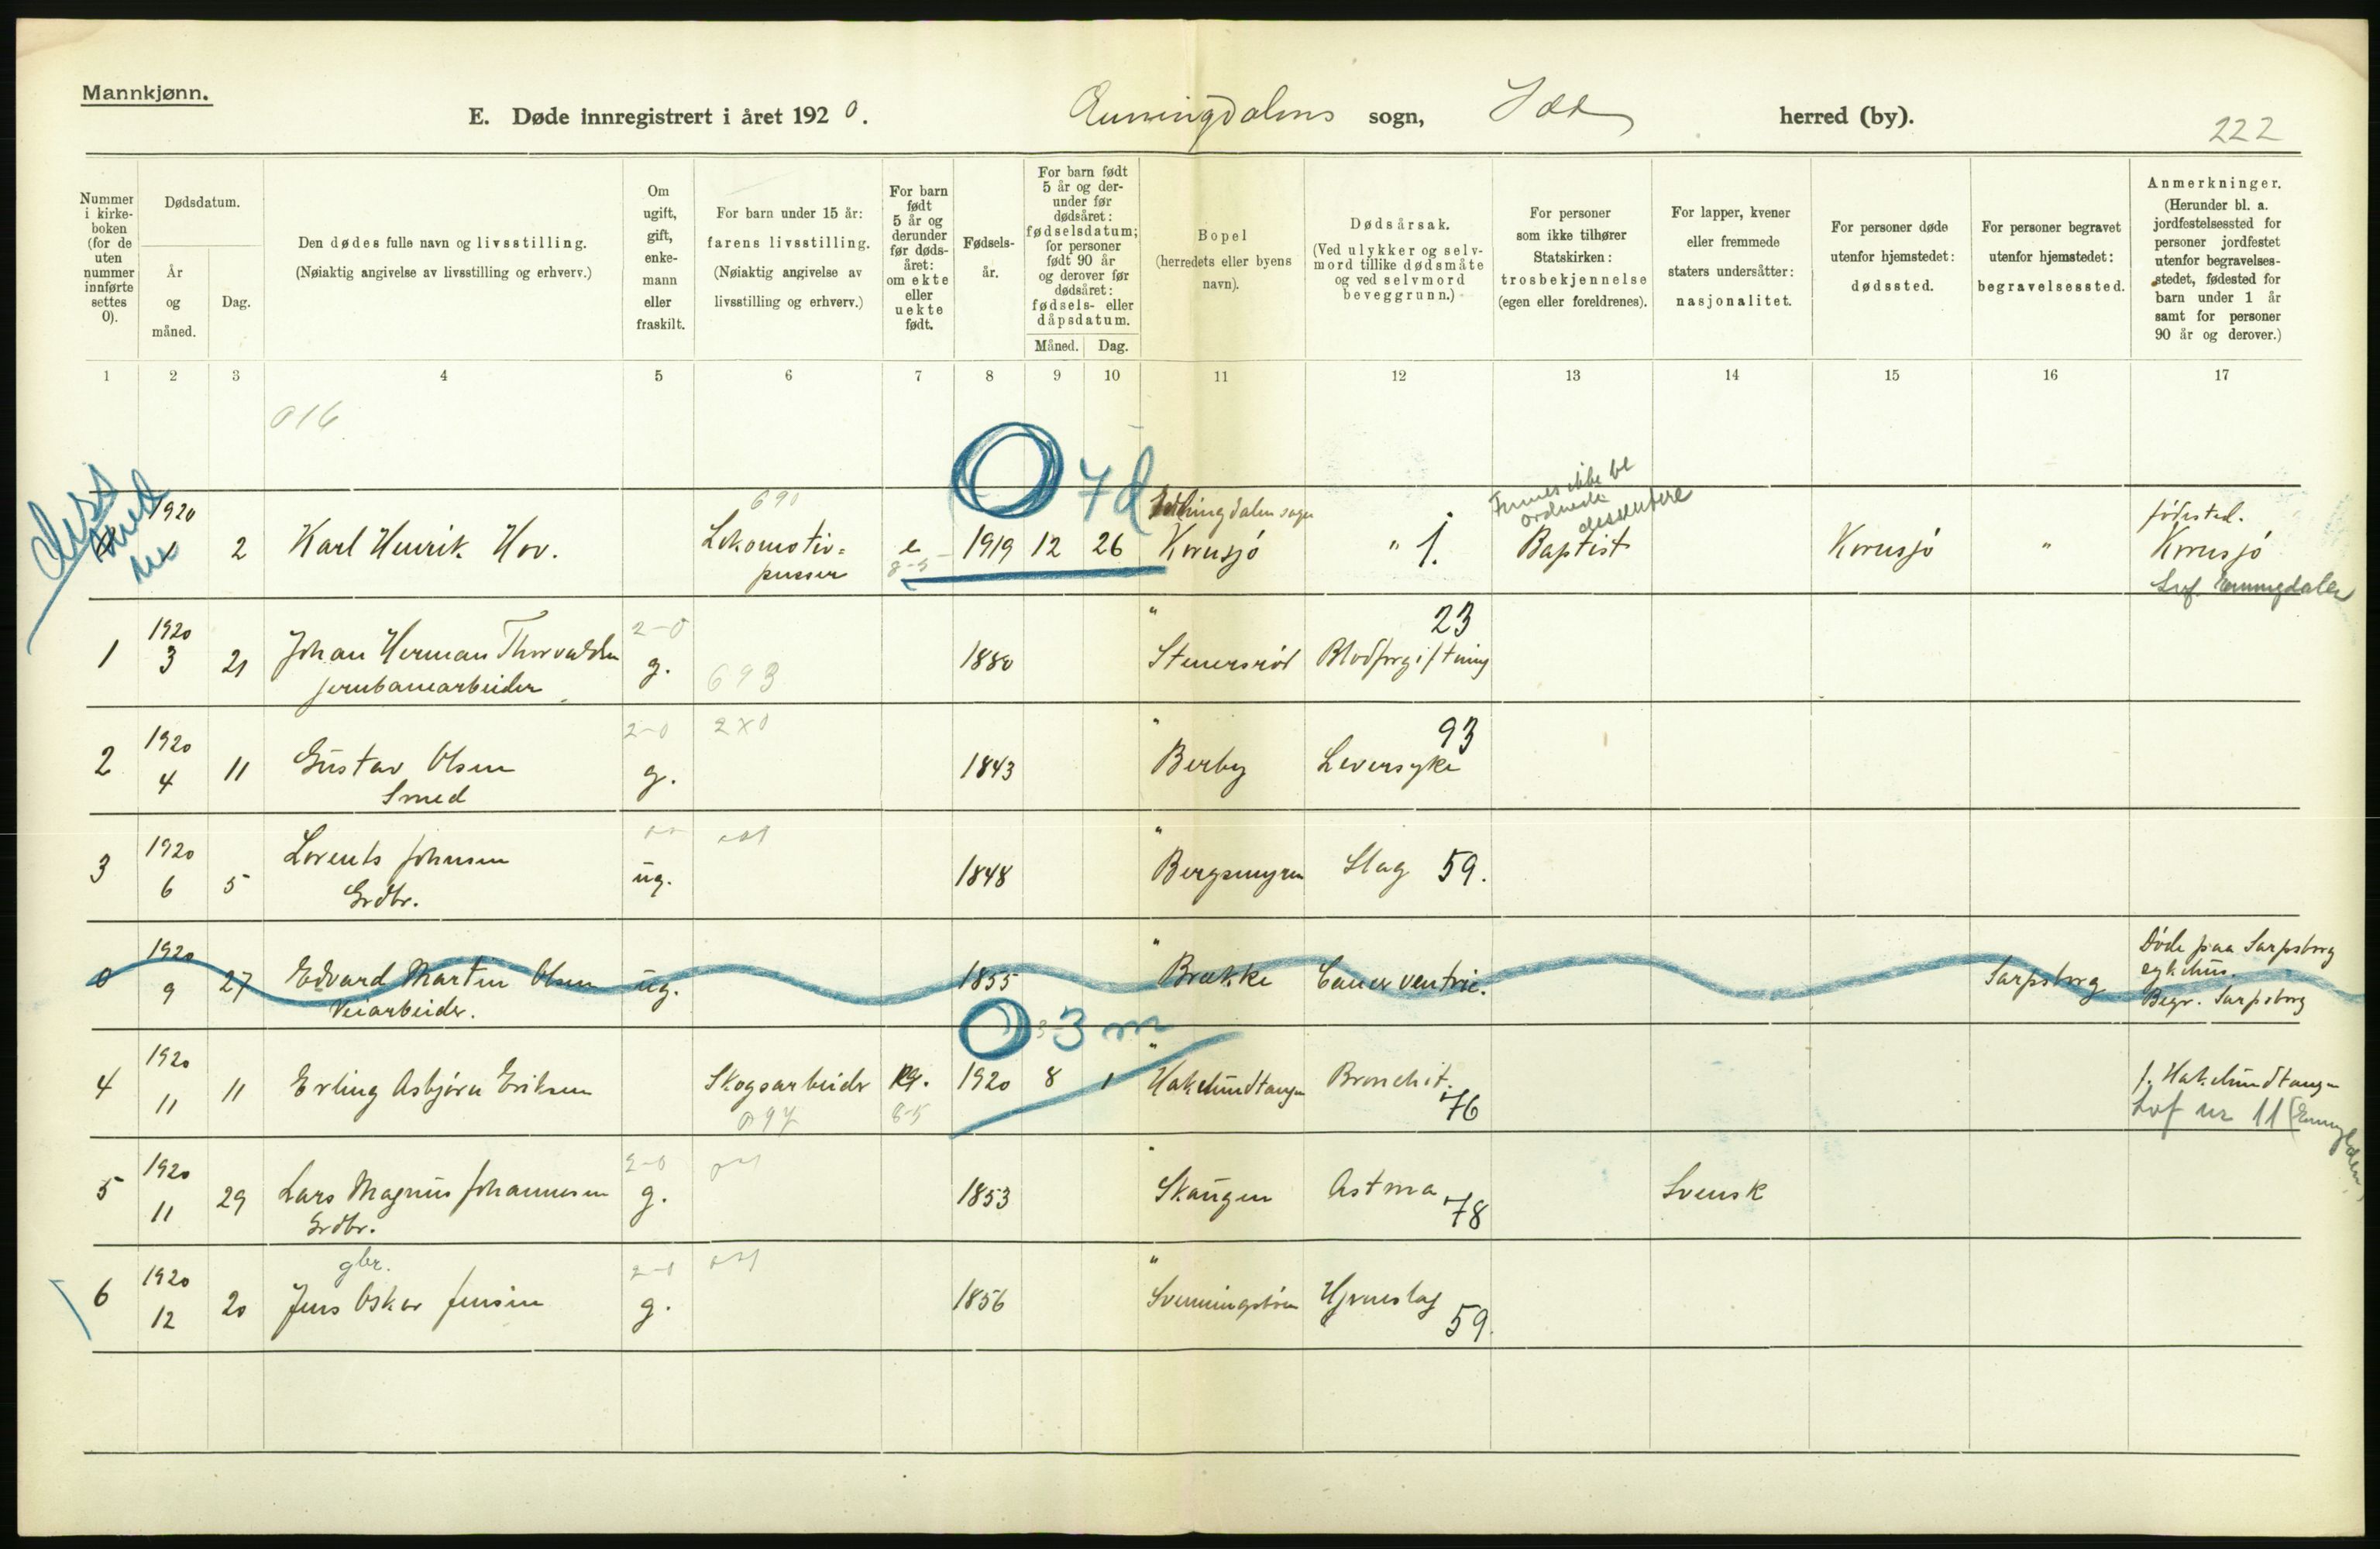 Mannkjønn.
E. Døde innregistrert i året 1920. Enningdalens sogn, Idd herred (by).
222
Nummer i kirkeboken (for de uten nummer innførte settes 0).
Dødsdatum.
År og måned.
Dag.
Den dødes fulle navn og livsstilling.
(Nøiaktig angivelse av livsstilling og erhverv.)
Om ugift, gift, enkemann eller fraskilt.
For barn under 15 år:
farens livsstilling.
(Nøiaktig angivelse av livsstilling og erhverv.)
For barn født 5 år og derunder før dødsåret: om ekte eller uekte født.
Fødselsår.
For barn født 5 år og derunder før dødsåret: fødselsdatum; for personer født 90 år og derover før dødsåret: fødsels- eller dåpsdatum.
Måned. Dag.
Bopel
(herredets eller byens navn).
Dødsårsak.
(Ved ulykker og selvmord tillike dødsmåte og ved selvmord beveggrunn.)
For personer som ikke tilhører Statskirken: trosbekjennelse (egen eller foreldrenes).
For lapper, kvener eller fremmede staters undersåtter: nasjonalitet.
For personer døde utenfor hjemstedet: dødssted.
For personer begravet utenfor hjemstedet: begravelsessted.
Anmerkninger.
(Herunder bl. a. jordfestelsessted for personer jordfestet utenfor begravelsesstedet, fødested for barn under 1 år samt for personer 90 år og derover.)
1 2 3 4 5 6 7 8 9 10 11 12 13 14 15 16 17
016
7 d
690
Finnes ikke bl
ordnede
dissentere
1920
1 2 Karl Henrik Hov. Lokomotiv=
pusser e 1919 12 26 Kornsjø " 1. Baptist Kornsjø " fødested.
Kornsjø
8-5
1920
1 3 21 Johan Herman Thorvaldsen
jernbanearbeider 2-0
g. 693 1880 " Stenersrød Blodforgiftning 23
1920
2 4 11 Gustav Olsen
Smed 2-0
g. 2x0 1843 " Berby Leversyke 93
1920
3 6 5 Lorents Johnsen
Grdbr. ug. 1848 " Bergsmyren Slag 59.
1920
0 9 27 Edvard Martin Olsen
Veiarbeider. ug. 1855 " Brække Cancer ventric. Sarpsborg Døde paa Sarpsborg
sykehus.
Begr. Sarpsborg
3 m
1920
4 11 11 Erling Asbjørn Eriksen Skogsarbeider 8-5 1920 8 1 " Hakelundtangen Bronchit. 76 f. Hakelundtangen
Lvf nr 11
1920
5 11 29 Lars Magnus Johannesen
Grdbr. 2-0
g. 1853 " Skaugen Astma 78 Svensk
gbr.
1920
6 12 20 Jens Oskar Jensen g. 1856 " Hjerneslag 59.